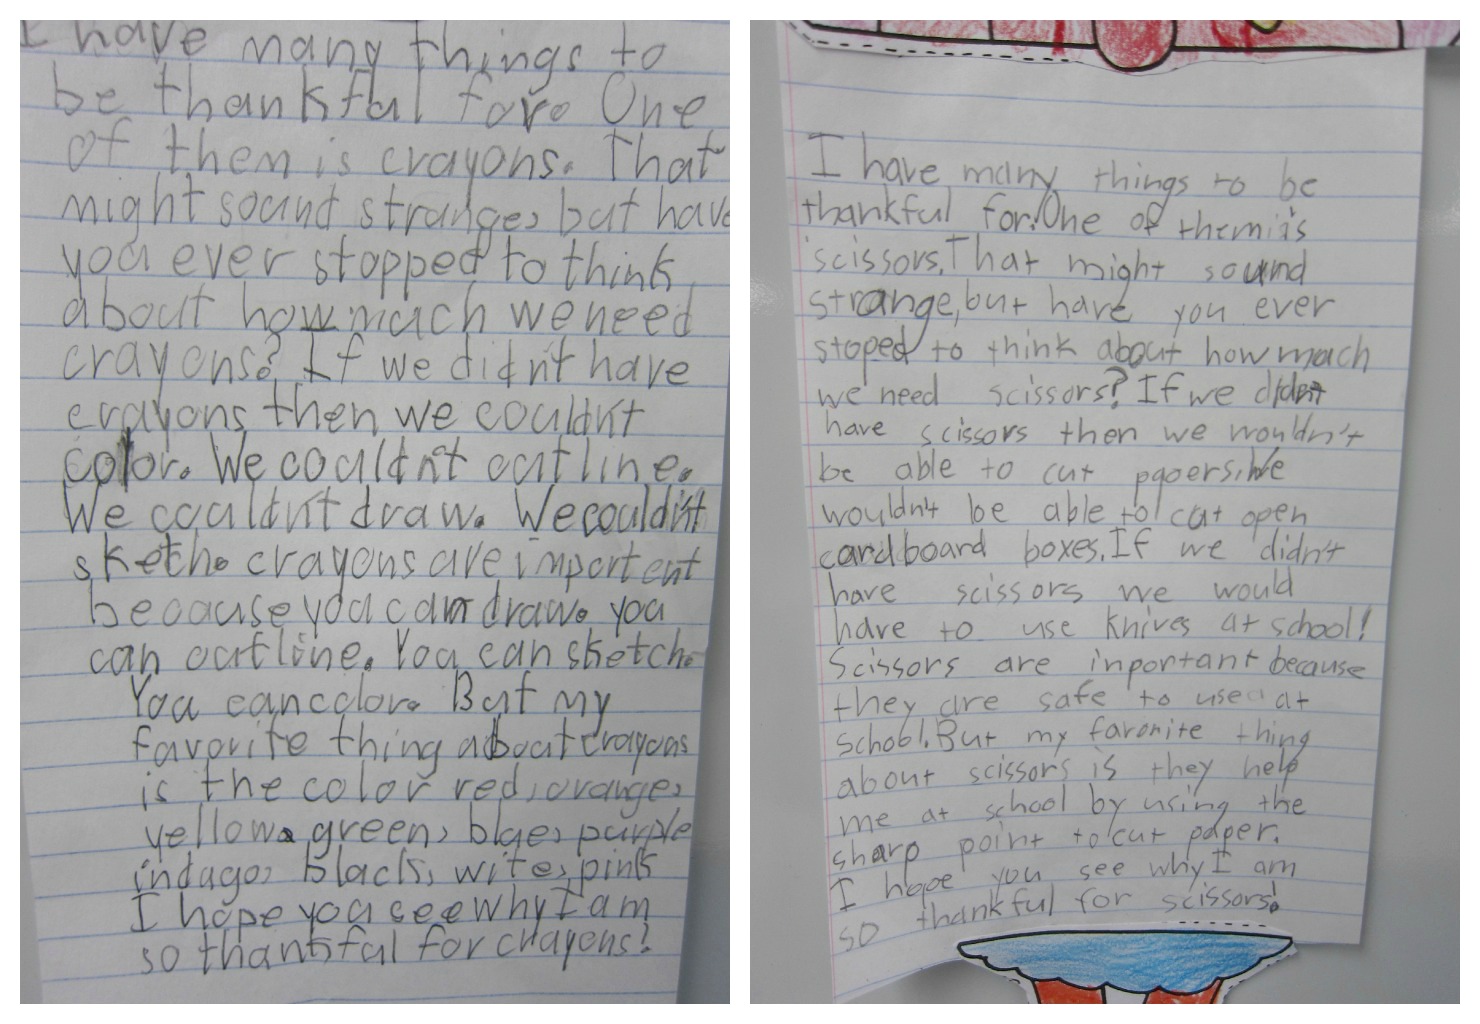 I have many things to
be thankful for. One
of them is crayons. That
might sound strange, but have
you ever stopped to think
about how much we need
crayons? If we didn't have
crayons then we couldn't
color. We couldn't outline.
We couldn't draw. We couldn't
sketch. crayons are important
because you can draw. you
can outline. You can sketch.
You can color. But my
favorite thing about crayons
is the color red, orange,
yellow, green, blue, purple
indago, black, write, pink
I hope you see why I am
so thankful for crayons!
I have many things to be
thankful for. One of them is
scissors. That might sound
strange, but have you ever
stoped to think about how much
we need scissors? If we didn't
have scissors then we wouldn't
be able to cut papers. We
wouldn't be able to cut open
cardboard boxes. If we didn't
have scissors we would
have to use knives at school!
Scissors are inportant because
they are safe to use at
school. But my favorite thing
about scissors is they help
me at school by using the
sharp point to cut paper.
I hope you see why I am
so thankful for scissors!